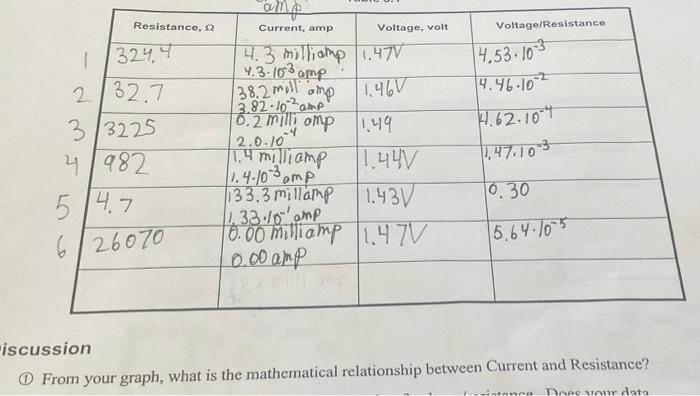 amp
Resistance, Ω Current, amp Voltage, volt Voltage/Resistance
1 324.4 4.3 milliamp 1.47V 4.53·10⁻³
4.3·10⁻³ amp
2 32.7 38.2 milliamp 1.46V 4.46·10⁻²
3.82·10⁻² amp
3 3225 0.2 milliamp 1.49 4.62·10⁻⁴
2.0·10⁻⁴
4 982 1.4 milliamp 1.44V 1.47·10⁻³
1.4·10⁻³ amp
5 4.7 133.3 millamp 1.43V 0.30
1.33·10⁻¹ amp
6 26070 0.00 milliamp 1.47V 5.64·10⁻⁵
0.00 amp
iscussion
① From your graph, what is the mathematical relationship between Current and Resistance?
Does your data